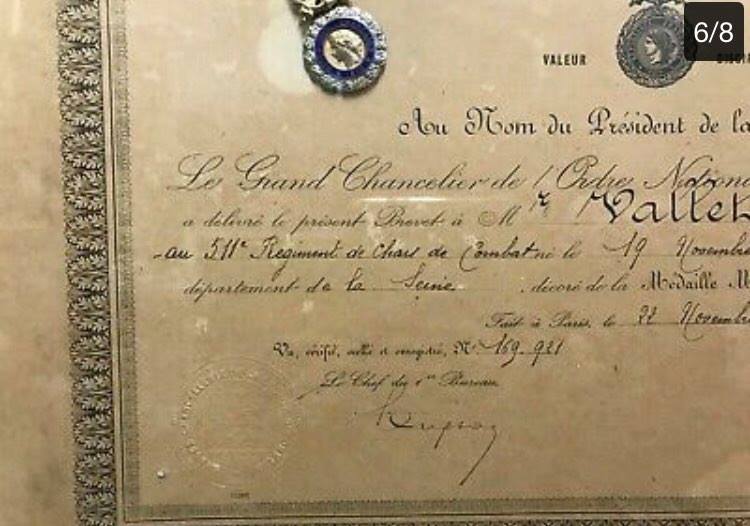 6/8
VALEUR
Au Nom du Président de la
Le Grand Chancelier de l'Ordre Nationa
a délivré le présent Brevet à Mr Vallet
au 511e Régiment de Chars de Combat né le 19 Novembre
département de la Seine, décoré de la Médaille M
Fait à Paris, le 22 Novembre
Vu, vérifié, scellé et enregistré, No 169.921
Le Chef du 1er Bureau